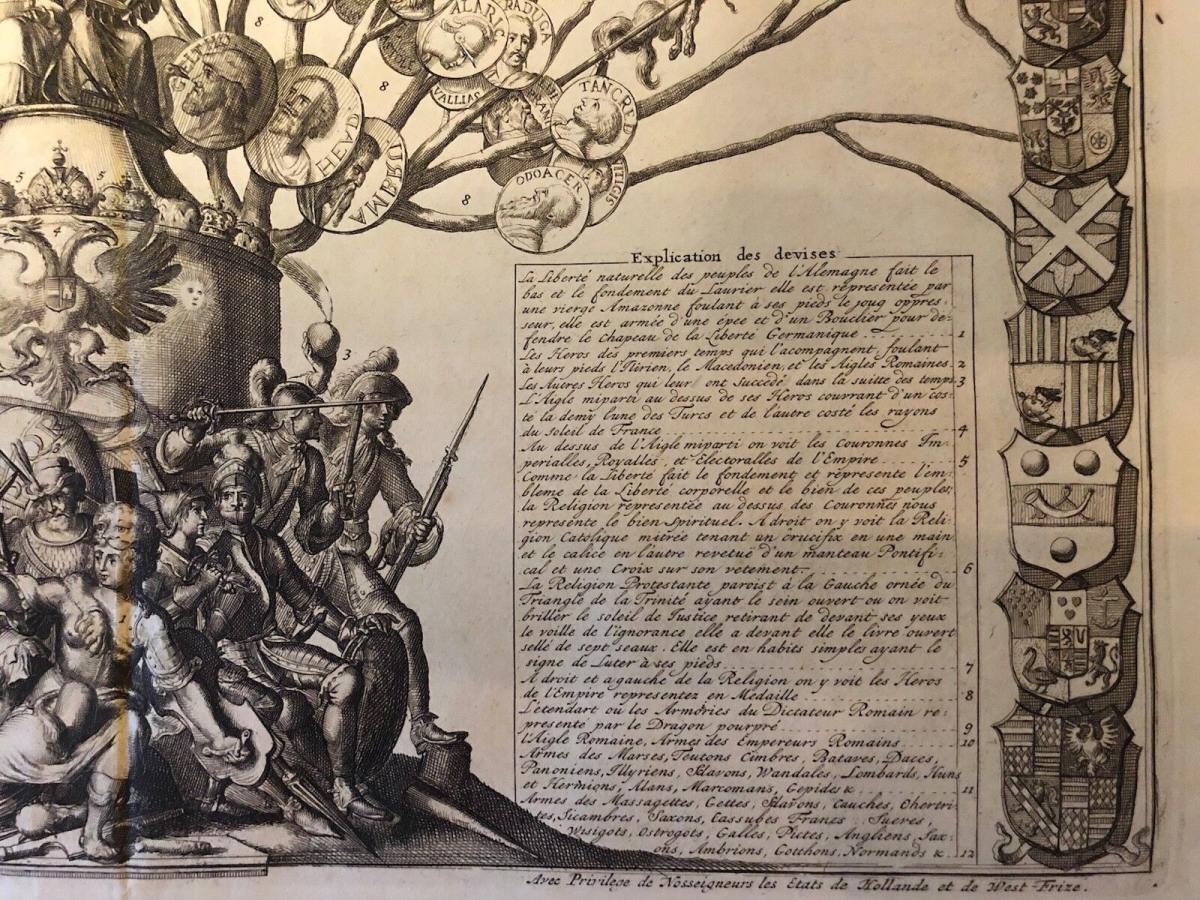 8
ALARIC
RADUGA
8
VALLIAS
TANCRED
THEUD
AMBRUS
ODOACER
TILGIS
8
5
5
4
3
1
Explication des devises
La Liberté naturelle des peuples de l'Alemagne fait le
bas et le fondement du Laurier elle est representée par
une vierge Amazonne foulant à ses pieds le joug oppres=
seur, elle est armée d'une épee et d'un Bouclier pour de=
fendre le chapeau de la Liberté Germanique 1
Les Heros des premiers temps qui l'acompagnent, foulant
à leurs pieds l'Ilirien, le Macedonien, et les Aigles Romaines. 2
Les Autres Heros qui leur ont succedé dans la suitte des temps. 3
L'Aigle miparti au dessus de ses Heros courrant d'un cos=
té la demy lune des Turcs et de l'autre costé les rayons
du soleil de France 4
Au dessus de l'Aigle miparti on voit les Couronnes Im=
perialles, Royalles, et Electoralles de l'Empire 5
Comme la Liberté fait le fondement et répresente l'em=
bleme de la Liberté corporelle et le bien de ces peuples,
la Religion representée au dessus des Couronnes nous
represente le bien Spirituel. A droit on y voit la Reli=
gion Catolique mitrée tenant un crucifix en une main
et le calice en l'autre revetuë d'un manteau Pontifi=
cal et une Croix sur son vetement. 6
La Religion Protestante paroist à la Gauche ornée du
Triangle de la Trinité ayant le sein ouvert ou on voit
briller le soleil de Justice retirant de devant ses yeux
le voille de l'ignorance elle a devant elle le livre ouvert
sellé de sept seaux. Elle est en habits simples ayant le
signe de Luter à ses pieds 7
A droit et a gauche de la Religion on y voit les Heros
de l'Empire representez en Medaille 8
L'étendart ou les Armories du Dictateur Romain re=
presenté par le Dragon pourpré 9
l'Aigle Romaine, Armes des Empereurs Romains 10
Armes des Marses, Teutons Cimbres, Bataves, Daces,
Panoniens, Illyriens, Sclavons, Wandales, Lombards, Huns
et Hermions, Alans, Marcomans, Gepides &c 11
Armes des Massagettes, Gettes, Sclavons, Cauches, Chertri=
tes, Sicambres, Saxons, Cassubes Francs Sueves,
Wisigots, Ostrogots, Galles, Pictes, Angliens, Sax=
ons, Ambrions, Gotthons, Normands &c. 12
Avec Privilege de Nosseigneurs les Etats de Hollande et de West-Frize.